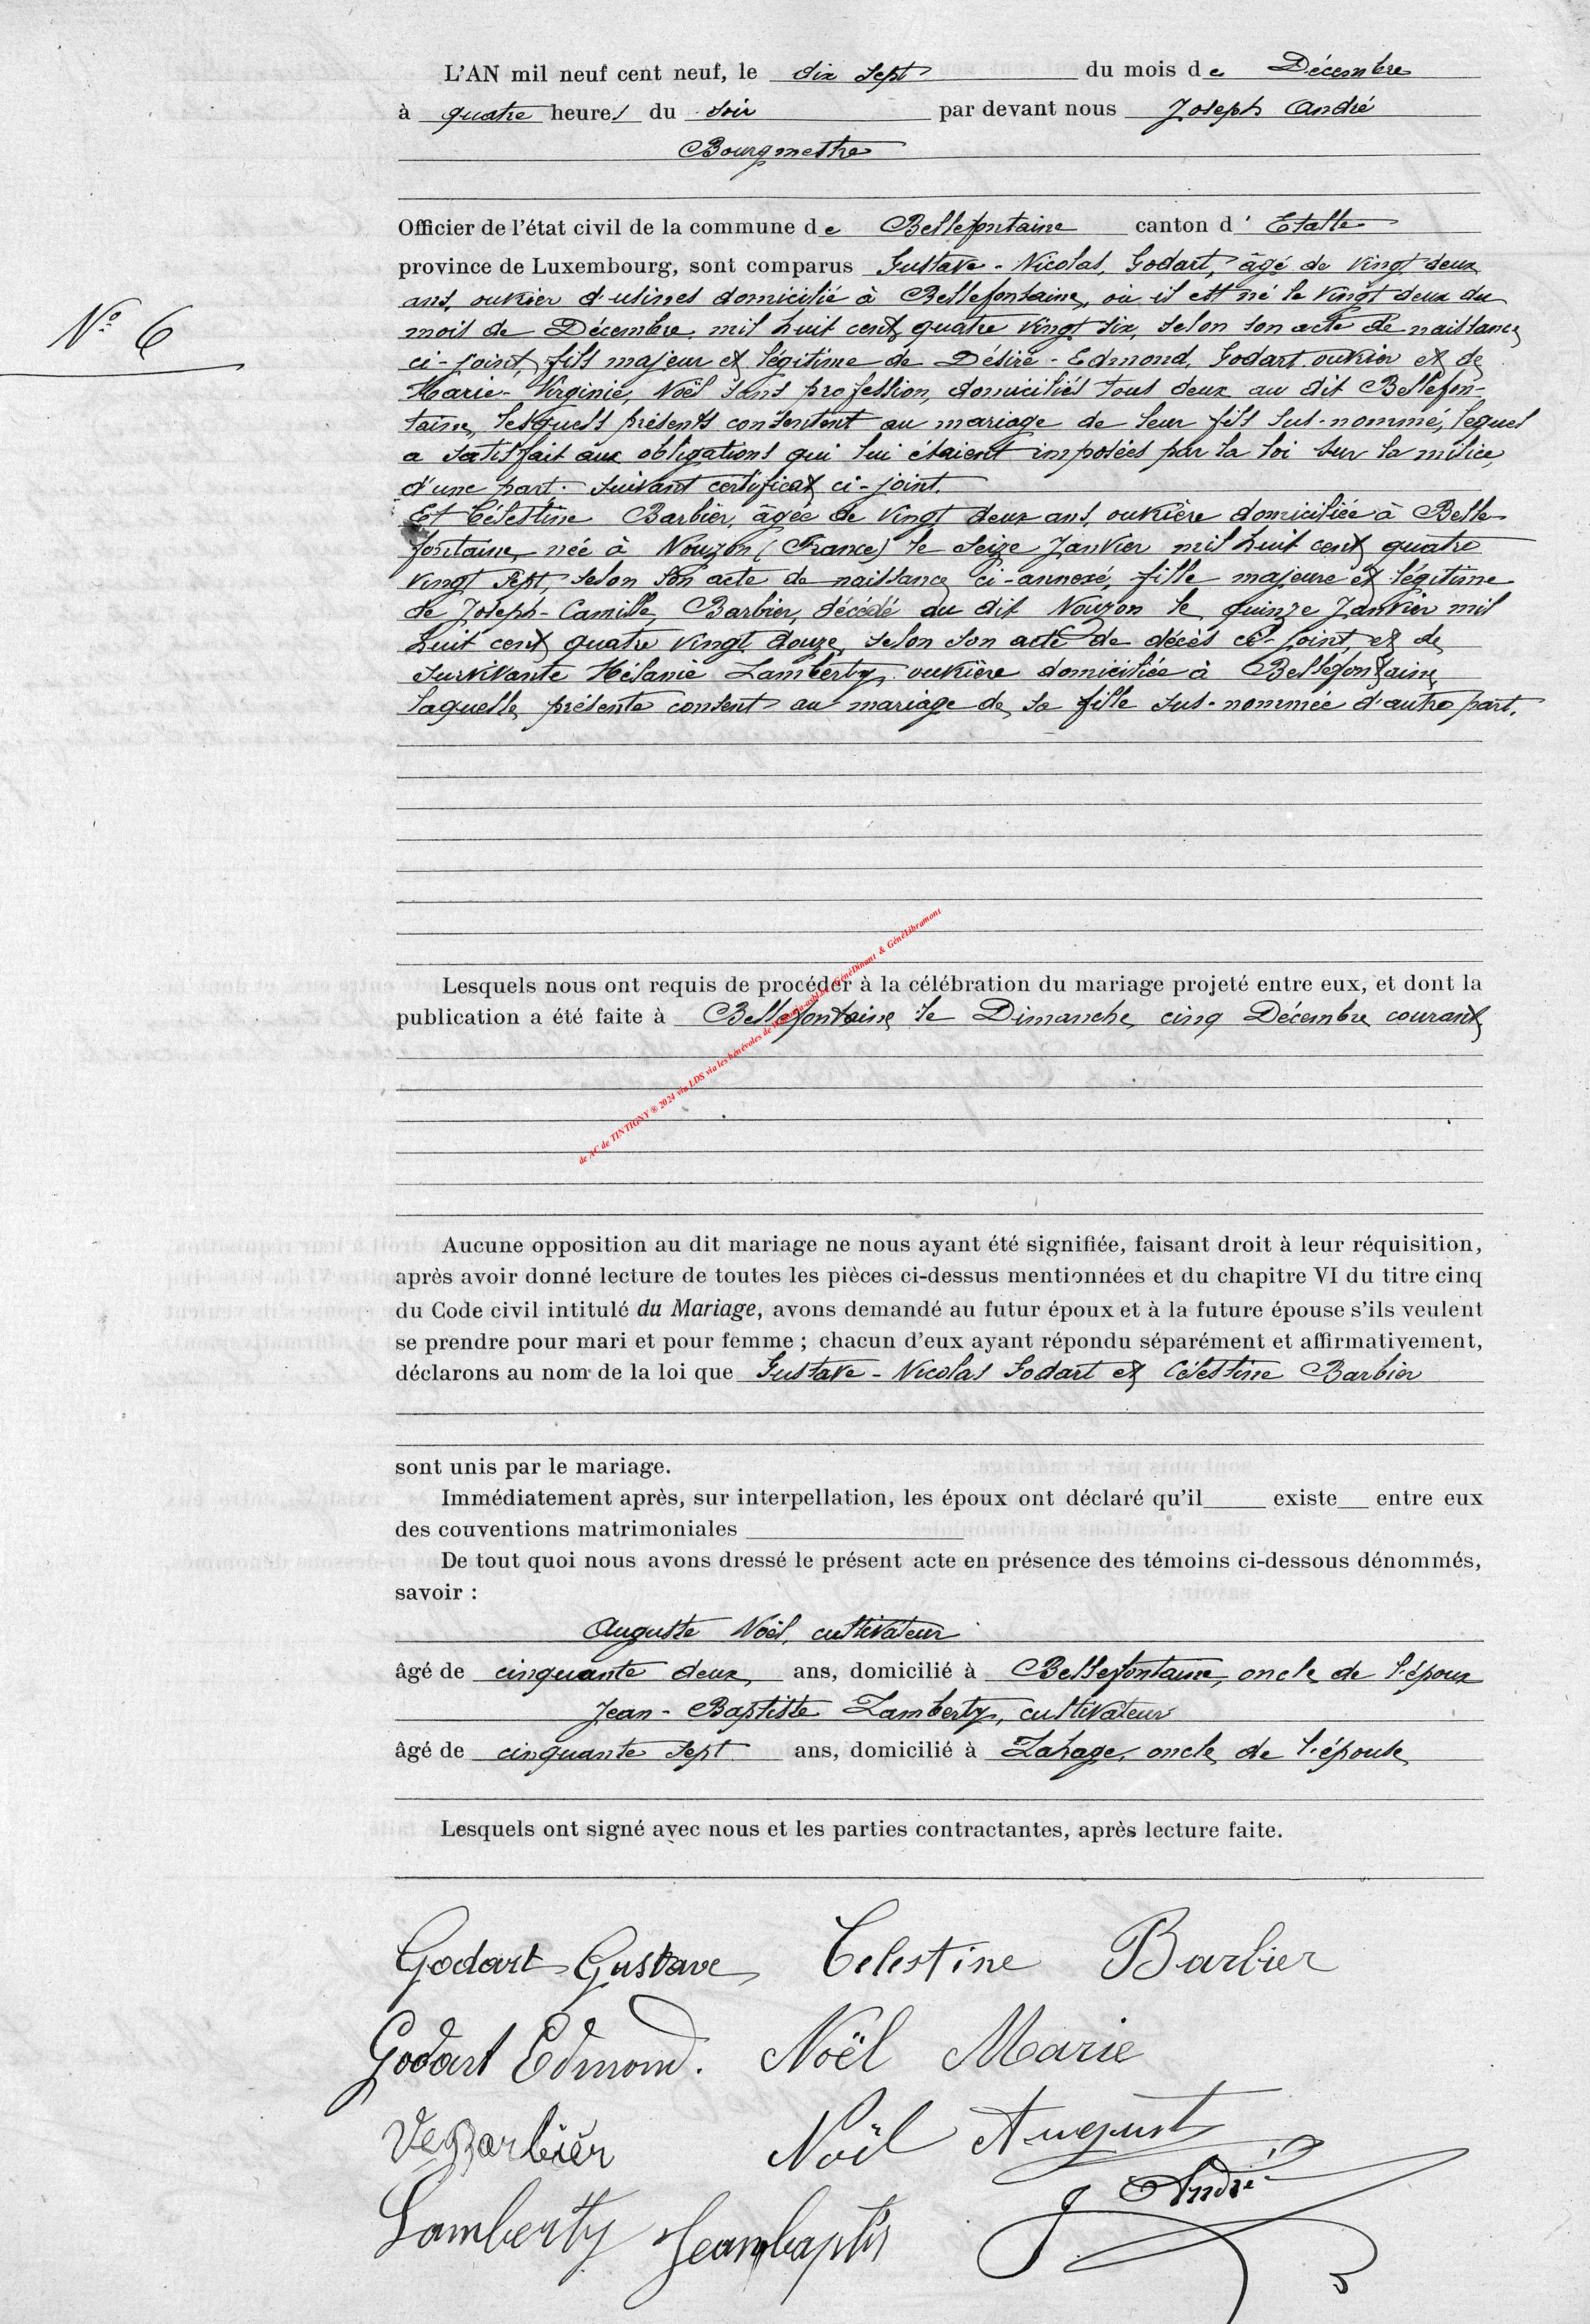 L'AN mil neuf cent neuf, le dix sept du mois de Décembre
à quatre heures du soir par devant nous Joseph André
Bourgmestre
Officier de l'état civil de la commune de Bellefontaine canton d' Etalle
province de Luxembourg, sont comparus Gustave-Nicolas, Godart, âgé de vingt deux
ans, ouvrier d'usines domicilié à Bellefontaine, où il est né le vingt deux du
N° 6
mois de Décembre mil huit cent quatre vingt six, selon son acte de naissance
ci-joint, fils majeur et légitime de Désiré-Edmond, Godart ouvrier et de
Marie-Virginie, Noël sans profession, domiciliés tous deux au dit Bellefon-
taine, lesquels présents consentent au mariage de leur fils sus-nommé, lequel
a satisfait aux obligations qui lui étaient imposées par la loi sur la milice,
d'une part. suivant certificat ci-joint.
Et Célestine Barbier, âgée de vingt deux ans, ouvrière domiciliée à Belle-
fontaine, née à Nouzon (France) le seize Janvier mil huit cent quatre
vingt sept, selon son acte de naissance ci-annexé, fille majeure et légitime
de Joseph-Camille, Barbier, décédé au dit Nouzon le quinze Janvier mil
huit cent quatre vingt douze, selon son acte de décès ci-joint, et de
survivante Mélanie Lamberty, ouvrière domiciliée à Bellefontaine,
laquelle présente consent au mariage de sa fille sus-nommée d'autre part.
Lesquels nous ont requis de procéder à la célébration du mariage projeté entre eux, et dont la
publication a été faite à Bellefontaine le Dimanche cinq Décembre courant
de AC de TINTIGNY ® 2024 via LDS via les bénévoles de GénéDinant & GénéLibramont
Aucune opposition au dit mariage ne nous ayant été signifiée, faisant droit à leur réquisition,
après avoir donné lecture de toutes les pièces ci-dessus mentionnées et du chapitre VI du titre cinq
du Code civil intitulé du Mariage, avons demandé au futur époux et à la future épouse s'ils veulent
se prendre pour mari et pour femme ; chacun d'eux ayant répondu séparément et affirmativement,
déclarons au nom de la loi que Gustave-Nicolas Godart et Célestine Barbier
sont unis par le mariage.
Immédiatement après, sur interpellation, les époux ont déclaré qu'il existe entre eux
des couventions matrimoniales
De tout quoi nous avons dressé le présent acte en présence des témoins ci-dessous dénommés,
savoir :
Auguste Noël, cultivateur
âgé de cinquante deux ans, domicilié à Bellefontaine, oncle de l'époux
Jean-Baptiste Lamberty, cultivateur
âgé de cinquante sept ans, domicilié à Lahage, oncle de l'épouse
Lesquels ont signé avec nous et les parties contractantes, après lecture faite.
Godart Gustave Celestine Barbier
Godart Edmond. Noël Marie
Ve Barbier Noël August
J André
Lamberty Jeanbaptis